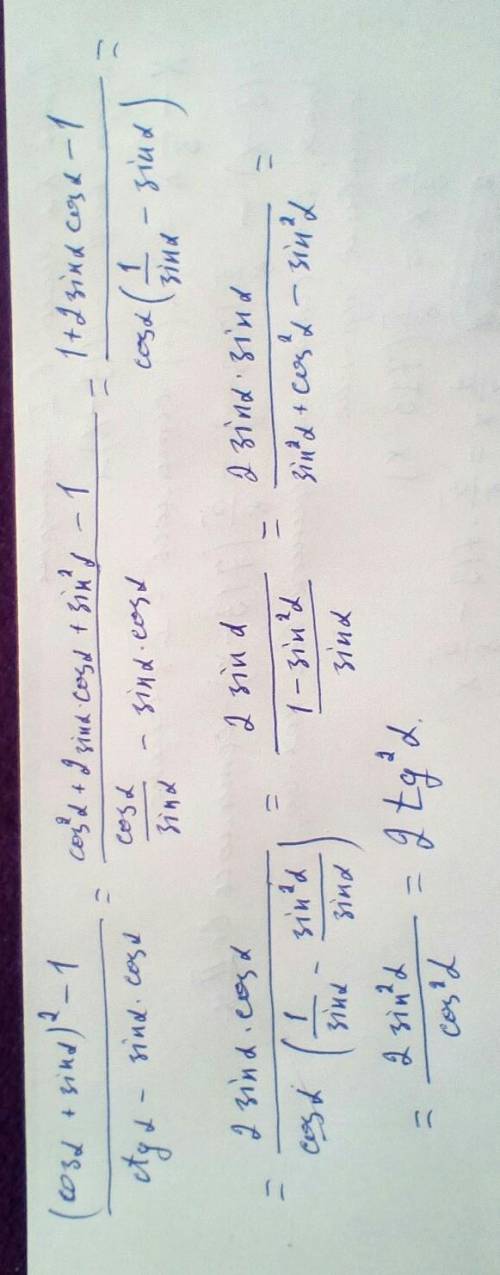 \frac{(cosα + sinα)^2 - 1}{ctgα - sinα·cosα} = \frac{cos^2α + 2sinα·cosα + sin^2α - 1}{\frac{cosα}{sinα} - sinα·cosα} = \frac{1 + 2sinα cosα - 1}{cosα(\frac{1}{sinα} - sinα)} =
= \frac{2sinα·cosα}{cosα(\frac{1}{sinα} - \frac{sin^2α}{sinα})} = \frac{2sinα}{\frac{1 - sin^2α}{sinα}} = \frac{2sinα·sinα}{sin^2α + cos^2α - sin^2α} =
= \frac{2sin^2α}{cos^2α} = 2tg^2α.